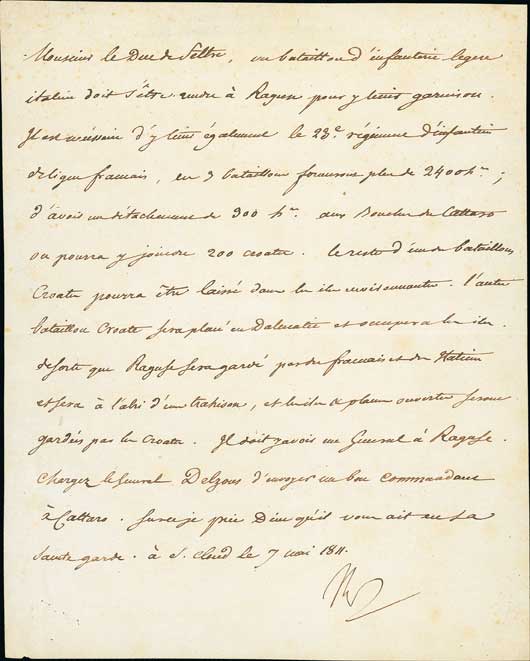 Monsieur le Duc de Feltre, un bataillon d'infanterie légere
italien doit s'être rendu à Raguse pour y tenir garnison.
Il est nécessaire d'y tenir également le 23e. régiment d'infanterie
de ligne français, en 3 bataillons formeront plus de 2400 hes. ;
d'avoir un détachement de 300 hes. aux Bouches du Cattaro
on pourra y joindre 200 croates. le reste d'un des bataillons
Croates pourra être laissé dans les iles environnantes. l'autre
bataillon Croate sera placé en Dalmatie et occupera les iles.
de sorte que Raguse sera gardé par des français et des Italiens
et sera à l'abri d'une trahison, et les iles & places ouvertes seront
gardées par les Croates. Il doit y avoir un Général à Raguse.
chargez le Général Delzons d'envoyer un bon commandant
à Cattaro. sur ce je prie Dieu qu'il vous ait en sa
sainte garde. à S. Cloud le 7 mai 1811.